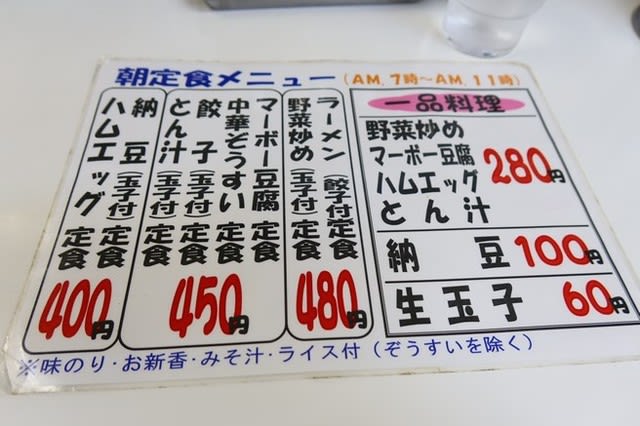 朝定食メニュー（AM,7時～AM,11時）
ラーメン（餃子付）定食
野菜炒め（玉子付）定食
480円
マーボー豆腐定食
中華ぞうすい定食
餃子（玉子付）定食
とん汁（玉子付）定食
450円
納豆（玉子付）定食
ハムエッグ定食
400円
一品料理
野菜炒め
マーボー豆腐
ハムエッグ
とん汁
280円
納豆100円
生玉子60円
※味のり・お新香・みそ汁・ライス付（ぞうすいを除く）